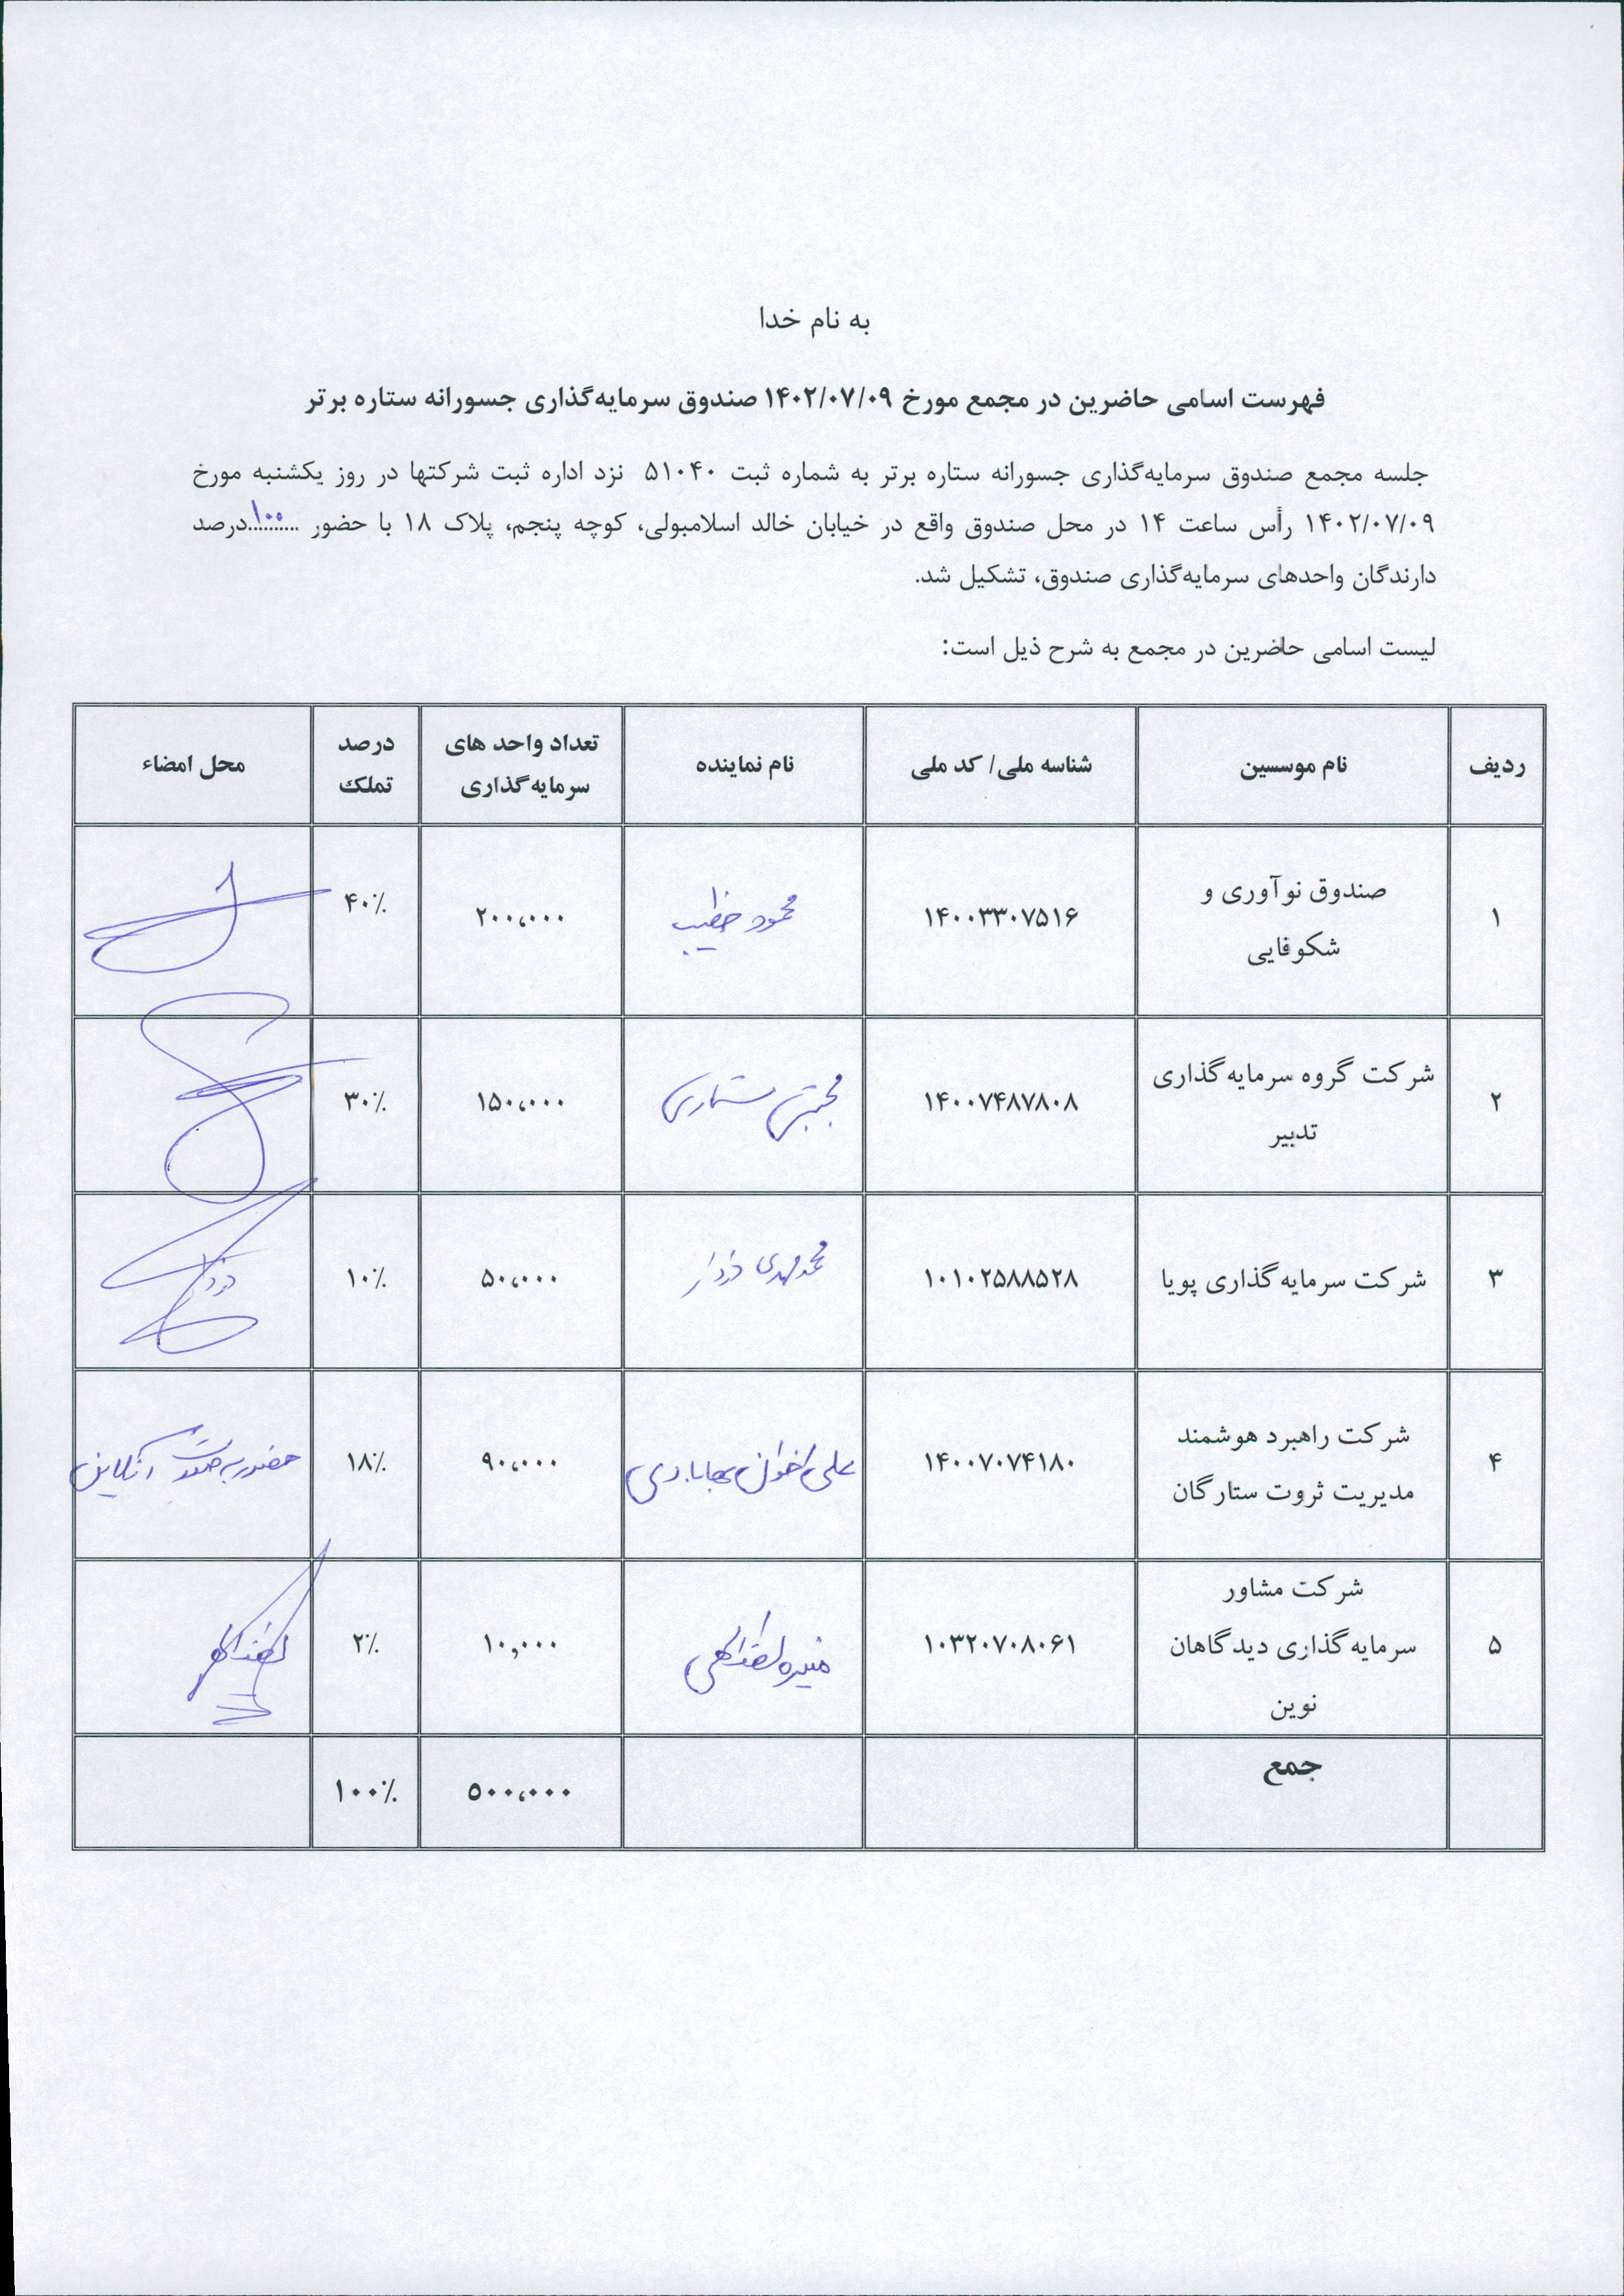 به نام خدا
فهرست اسامی حاضرین در مجمع مورخ ۱۴۰۲/۰۷/۰۹ صندوق سرمایه‌گذاری جسورانه ستاره برتر
جلسه مجمع صندوق سرمایه‌گذاری جسورانه ستاره برتر به شماره ثبت ۵۱۰۴۰ نزد اداره ثبت شرکتها در روز یکشنبه مورخ
۱۴۰۲/۰۷/۰۹ رأس ساعت ۱۴ در محل صندوق واقع در خیابان خالد اسلامبولی، کوچه پنجم، پلاک ۱۸ با حضور ....۱۰۰....درصد
دارندگان واحدهای سرمایه‌گذاری صندوق، تشکیل شد.
لیست اسامی حاضرین در مجمع به شرح ذیل است:
ردیف نام موسسین شناسه ملی/ کد ملی نام نماینده تعداد واحد های سرمایه‌گذاری درصد تملک محل امضاء
۱ صندوق نوآوری و شکوفایی ۱۴۰۰۳۳۰۷۵۱۶ محمود خطیب ۲۰۰،۰۰۰ ۴۰٪
۲ شرکت گروه سرمایه‌گذاری تدبیر ۱۴۰۰۷۴۸۷۸۰۸ مجتبی ۱۵۰،۰۰۰ ۳۰٪
۳ شرکت سرمایه‌گذاری پویا ۱۰۱۰۲۵۸۸۵۲۸ محمدمهدی ۵۰،۰۰۰ ۱۰٪
۴ شرکت راهبرد هوشمند مدیریت ثروت ستارگان ۱۴۰۰۷۰۷۴۱۸۰ علی اخوان بهابادی ۹۰،۰۰۰ ۱۸٪ حضور به صورت آنلاین
۵ شرکت مشاور سرمایه‌گذاری دیدگاهان نوین ۱۰۳۲۰۷۰۸۰۶۱ منیره لطف‌الهی ۱۰,۰۰۰ ۲٪
جمع ۵۰۰،۰۰۰ ۱۰۰٪